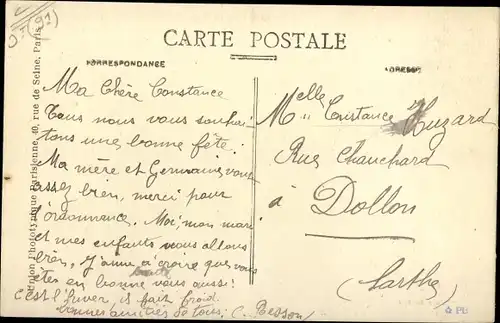 CARTE POSTALE
CORRESPONDANCE
ADRESSE
Union Phototypique Parisienne, 40, rue de Seine, Paris
(91)
Ma Chère Constance
Tous nous vous souhai-
tons une bonne fête.
Ma mère et Germaine vont
assez bien, merci pour
l'ordonnance. Moi, mon mari
et mes enfants nous allons
bien, J'aime à croire que vous
êtes en bonne vous aussi.
santé
c'est l'hiver, il fait froid.
bonnes amitiés de tous. C. Besson
Melle Constance Huzard
Rue Chauchard
à Dollon
(Sarthe)